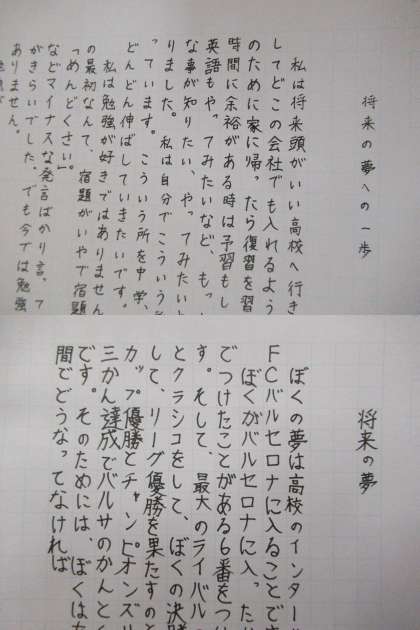 将来の夢への一歩
私は将来頭がいい高校へ行き
してどこの会社でも入れるよう
のために家に帰ったら復習を習
時間に余裕がある時は予習もし
英語もやってみたいなど、もっ
な事が知りたい、やってみたい
りました。私は自分でこういう
っています。こういう所を中学、
どんどん伸ばしていきたいです。
私は勉強が好きではありません
の最初なんて、宿題がいやで宿題
「めんどくさい。」
などマイナスな発言ばかり言って
がきらいでした。でも今では勉強
ありません。
将来の夢
ぼくの夢は高校のインター
FCバルセロナに入ることです
ぼくがバルセロナに入ったか
でつけたことがある6番をつけ
す。そして、最大のライバル
とクラシコをして、ぼくの決勝
して、リーグ優勝を果たすのと
カップ優勝とチャンピオンズリ
三かん達成でバルサのかんとく
です。そのためには、ぼくはた
間でどうなってなければ